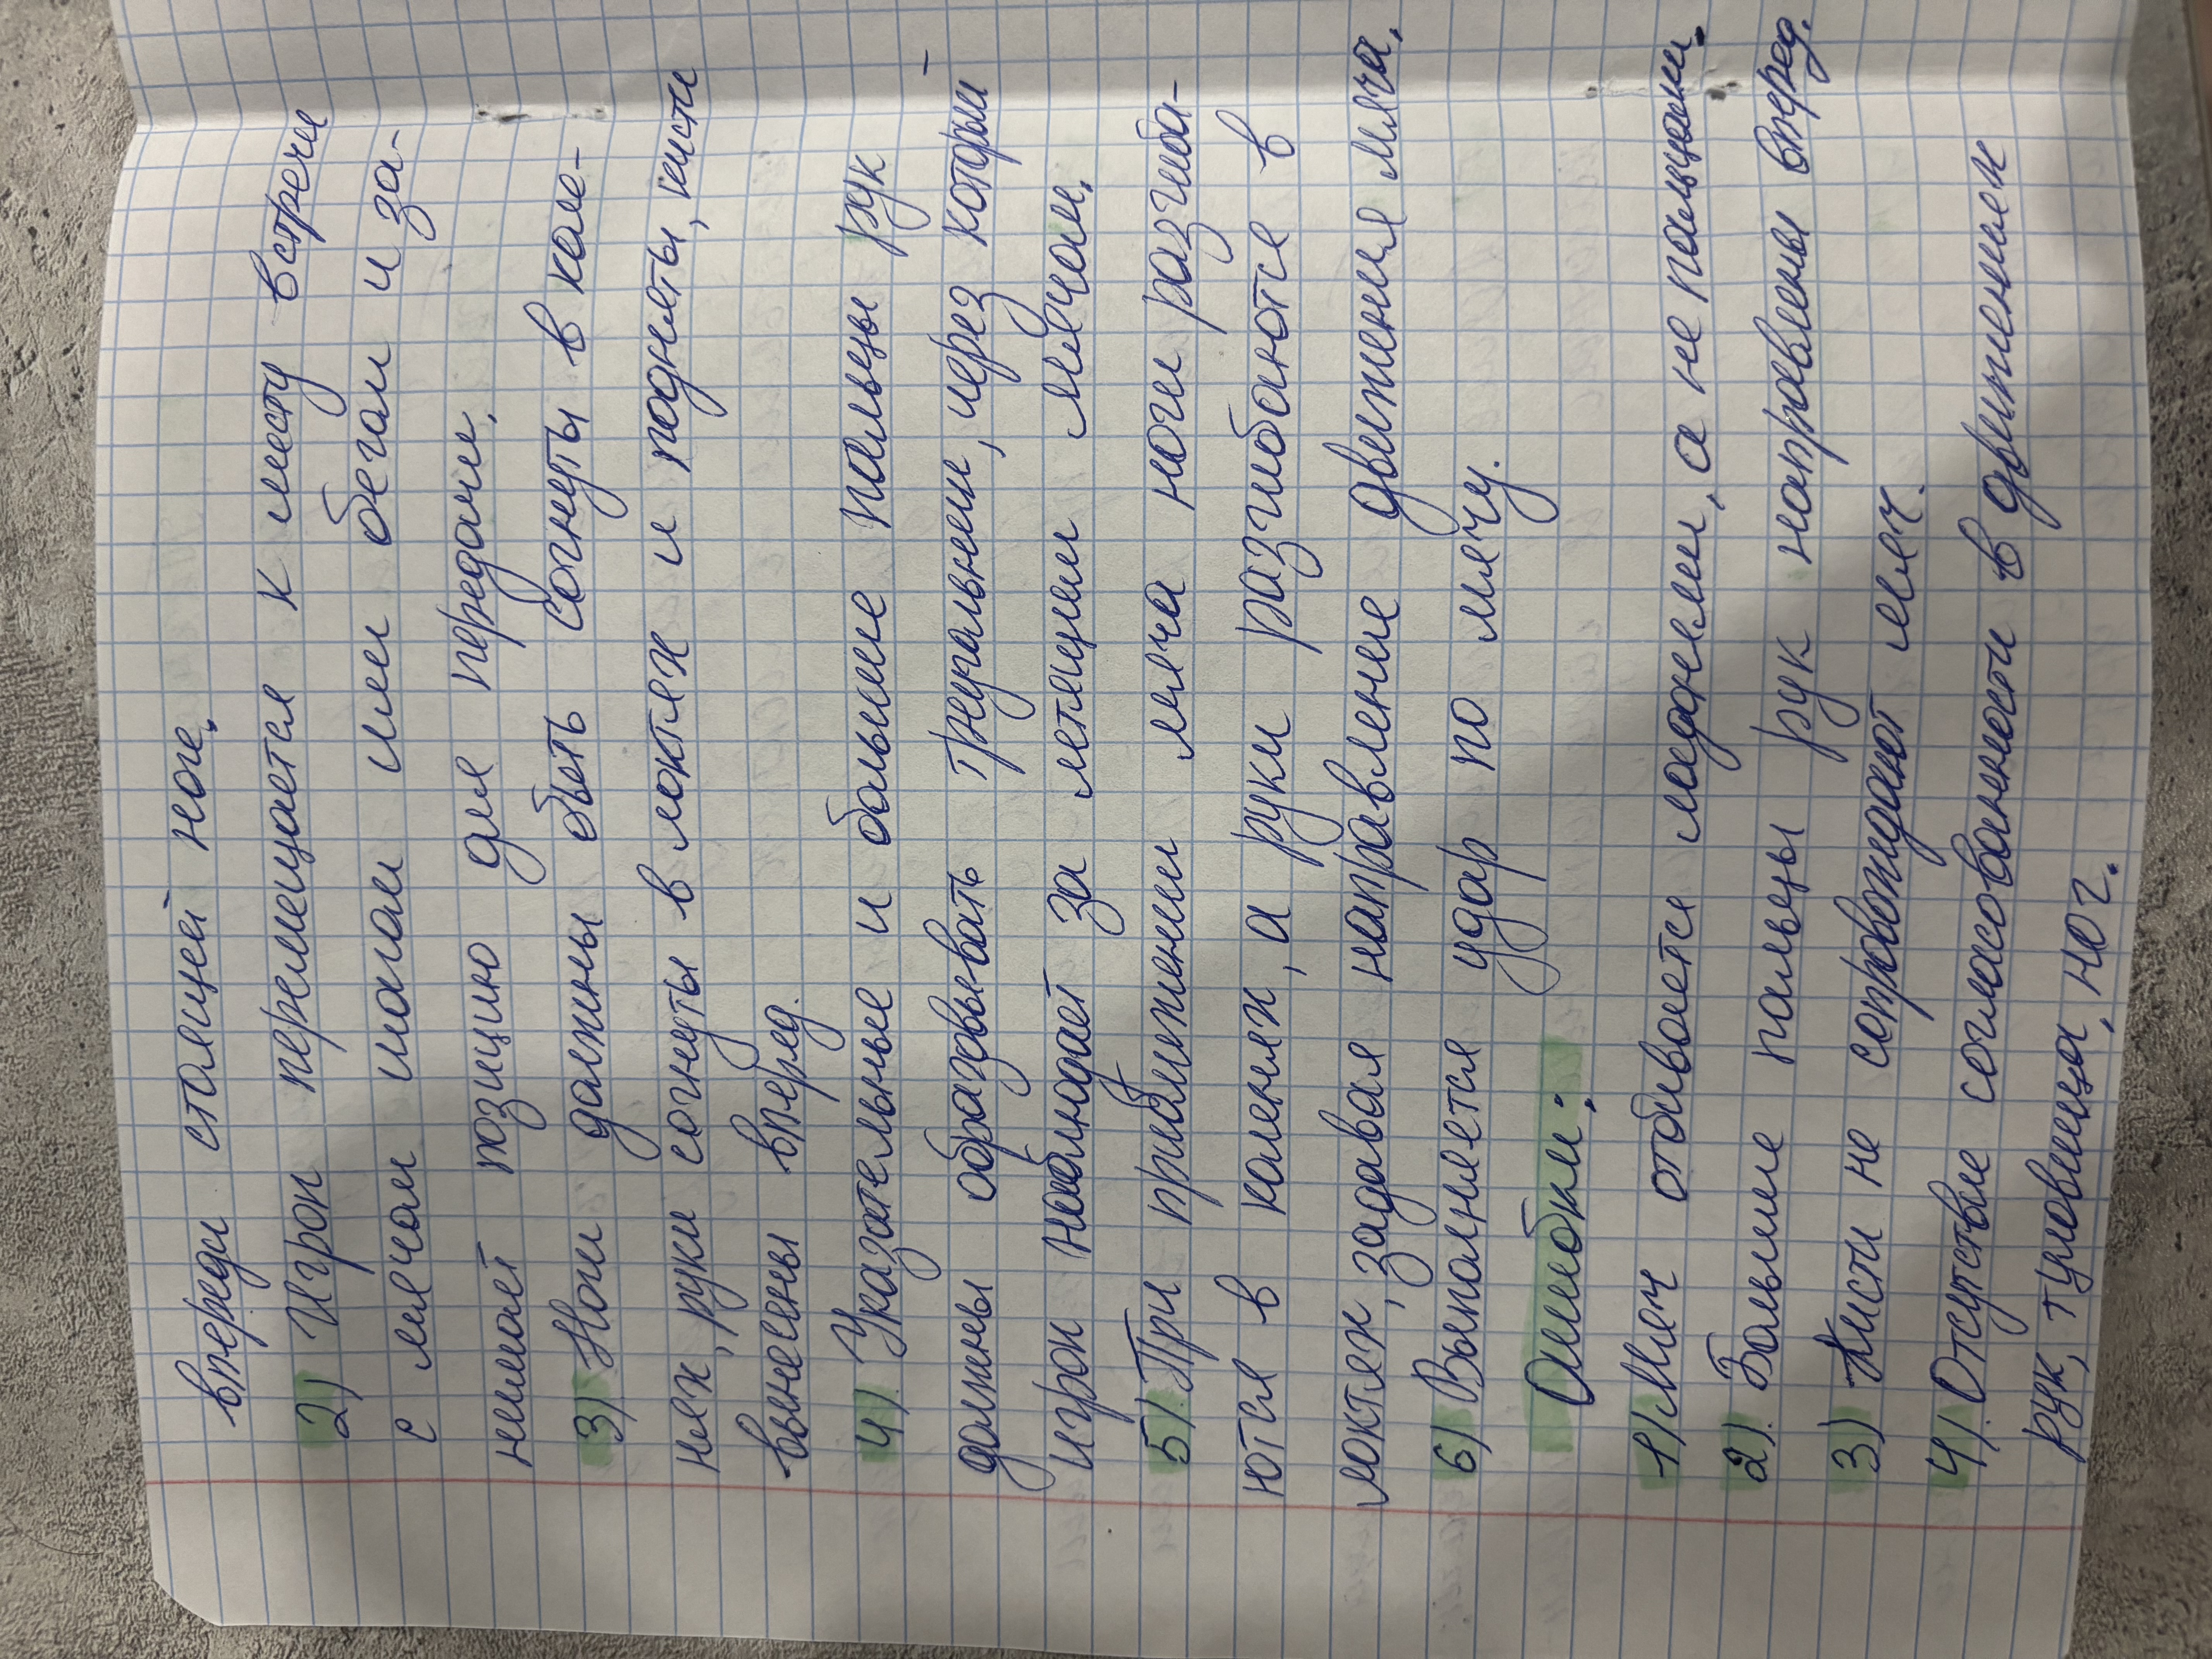 впереди стоящей ноге.
2) Игрок перемещается к месту встречи
с мячом шагом или бегом и за-
нимает позицию для передачи.
3) Ноги должны быть согнуты в коле-
нях, руки согнуты в локтях и подняты, кисти
вынесены вперед.
4) Указательные и большие пальцы рук
должны образовывать треугольник, через который
игрок наблюдает за летящим мячом.
5) При приближении мяча ноги разгиба-
ются в коленях, а руки разгибаются в
локтях, задавая направление движения мяча.
6) Выполняется удар по мячу.
Ошибки:
1) Мяч отбивается ладонями, а не пальцами.
2) Большие пальцы рук направлены вперед.
3) Кисти не сопровождают мяч.
4) Отсутствие согласованности в движениях
рук, туловища, ног.